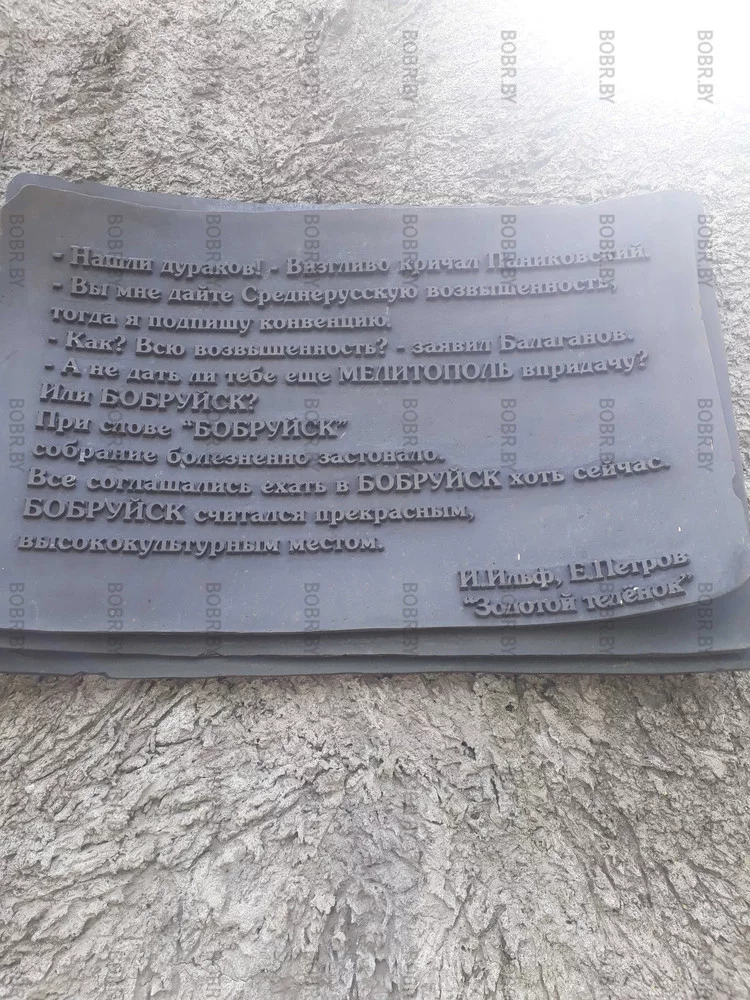 - Нашли дураков! - Визгливо кричал Паниковский.
- Вы мне дайте Среднерусскую возвышенность,
тогда я подпишу конвенцию.
- Как? Всю возвышенность? - заявил Балаганов.
- А не дать ли тебе еще МЕЛИТОПОЛЬ впридачу?
Или БОБРУЙСК?
При слове "БОБРУЙСК"
собрание болезненно застонало.
Все соглашались ехать в БОБРУЙСК хоть сейчас.
БОБРУЙСК считался прекрасным,
высококультурным местом.
И.Ильф, Е.Петров
"Золотой телёнок"
BOBR.BY